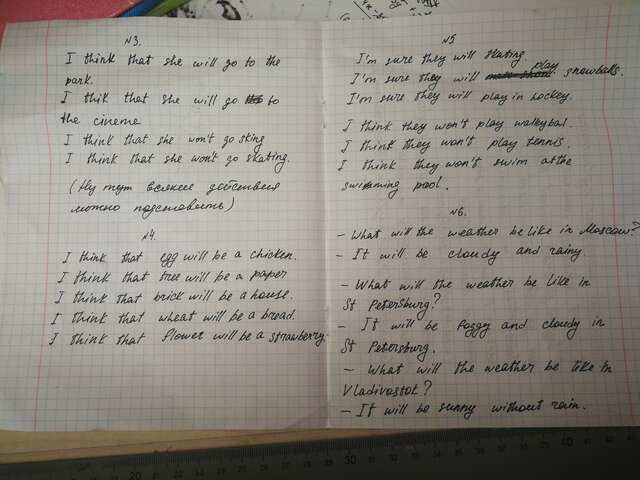 N3.
I think that she will go to the
park.
I thik that she will go to
the cineme
I think that she won't go sking
I think that she won't go skating.
(Ну тут всякие действия
можно подставить)
N4.
I think that egg will be a chicken.
I think that tree will be a paper
I think that brick will be a house.
I think that wheat will be a bread.
I think that flower will be a strawberry.
N5
I'm sure they will skating.
I'm sure they will play snowballs.
I'm sure they will play in hockey.
I think they won't play walleyball.
I think they won't play tennis.
I think they won't swim at the
swimming pool.
N6.
- What will the weather be like in Moscow?
- It will be cloudy and rainy.
- What will the weather be like in
St Petersburg?
- It will be foggy and cloudy in
St Petersburg.
- What will the weather be like in
Vladivostok?
- It will be sunny without rain.
30
40